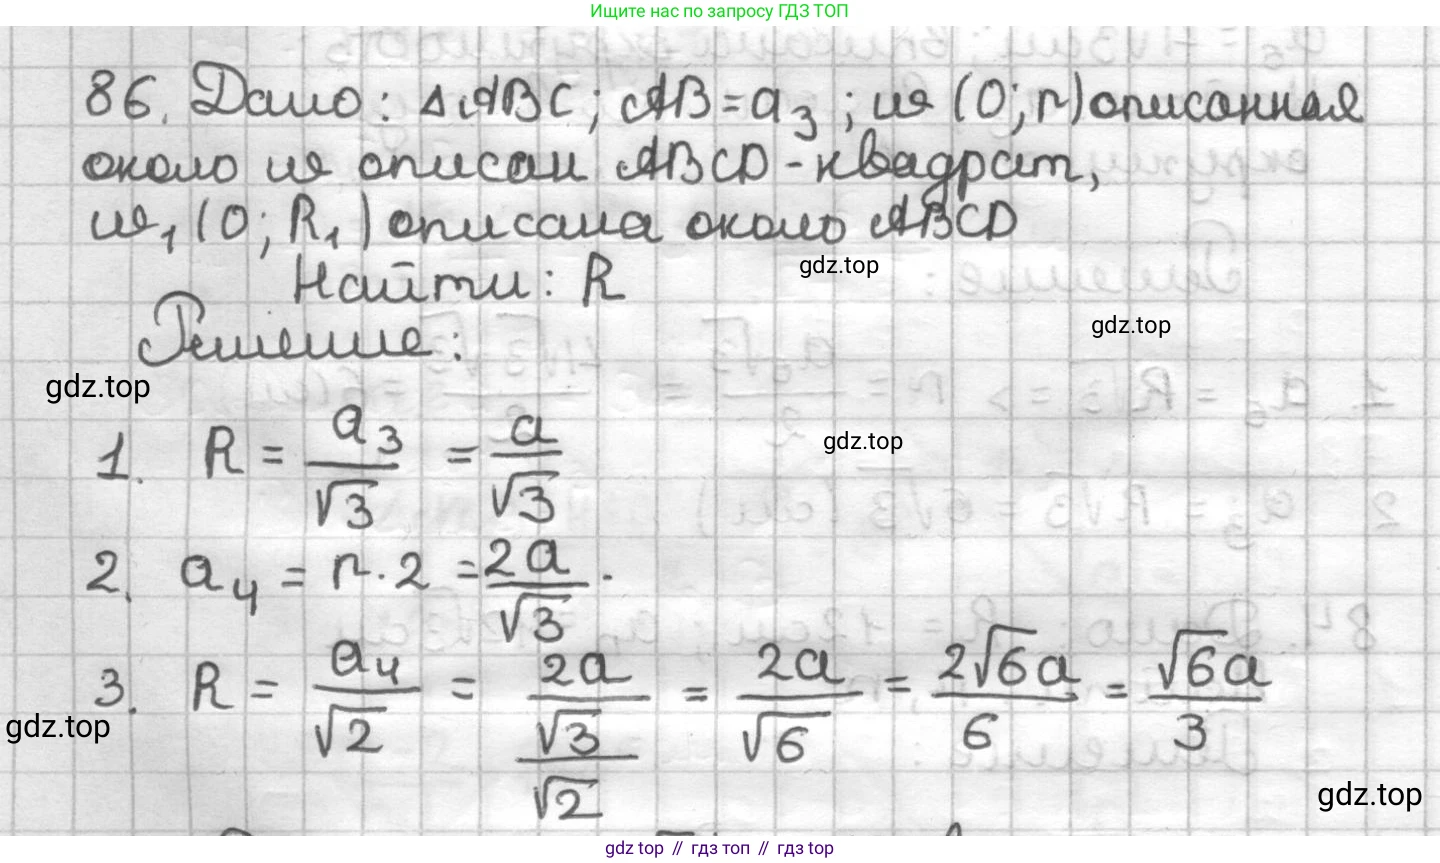 Ищите нас по запросу ГДЗ ТОП
86. Дано: △ABC; AB=a₃; ω (O; r) описанная
около ω описан ABCD - квадрат,
ω₁ (O; R₁) описана около ABCD
gdz.top
Найти: R
gdz.top
Решение:
gdz.top
1. R = a₃/√3 = a/√3
gdz.top
2. a₄ = r · 2 = 2a/√3.
3. R = a₄/√2 = 2a/√3/√2 = 2a/√6 = 2√6a/6 = √6a/3
gdz.top
gdz.top
gdz top // гдз топ // гдз top